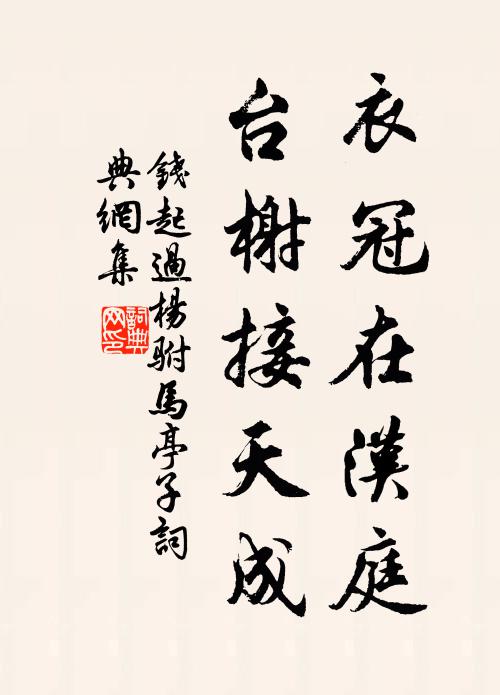 衣冠在漢庭
台榭接天成
錢起過楊駙馬亭子詞
典網集
詞典网印